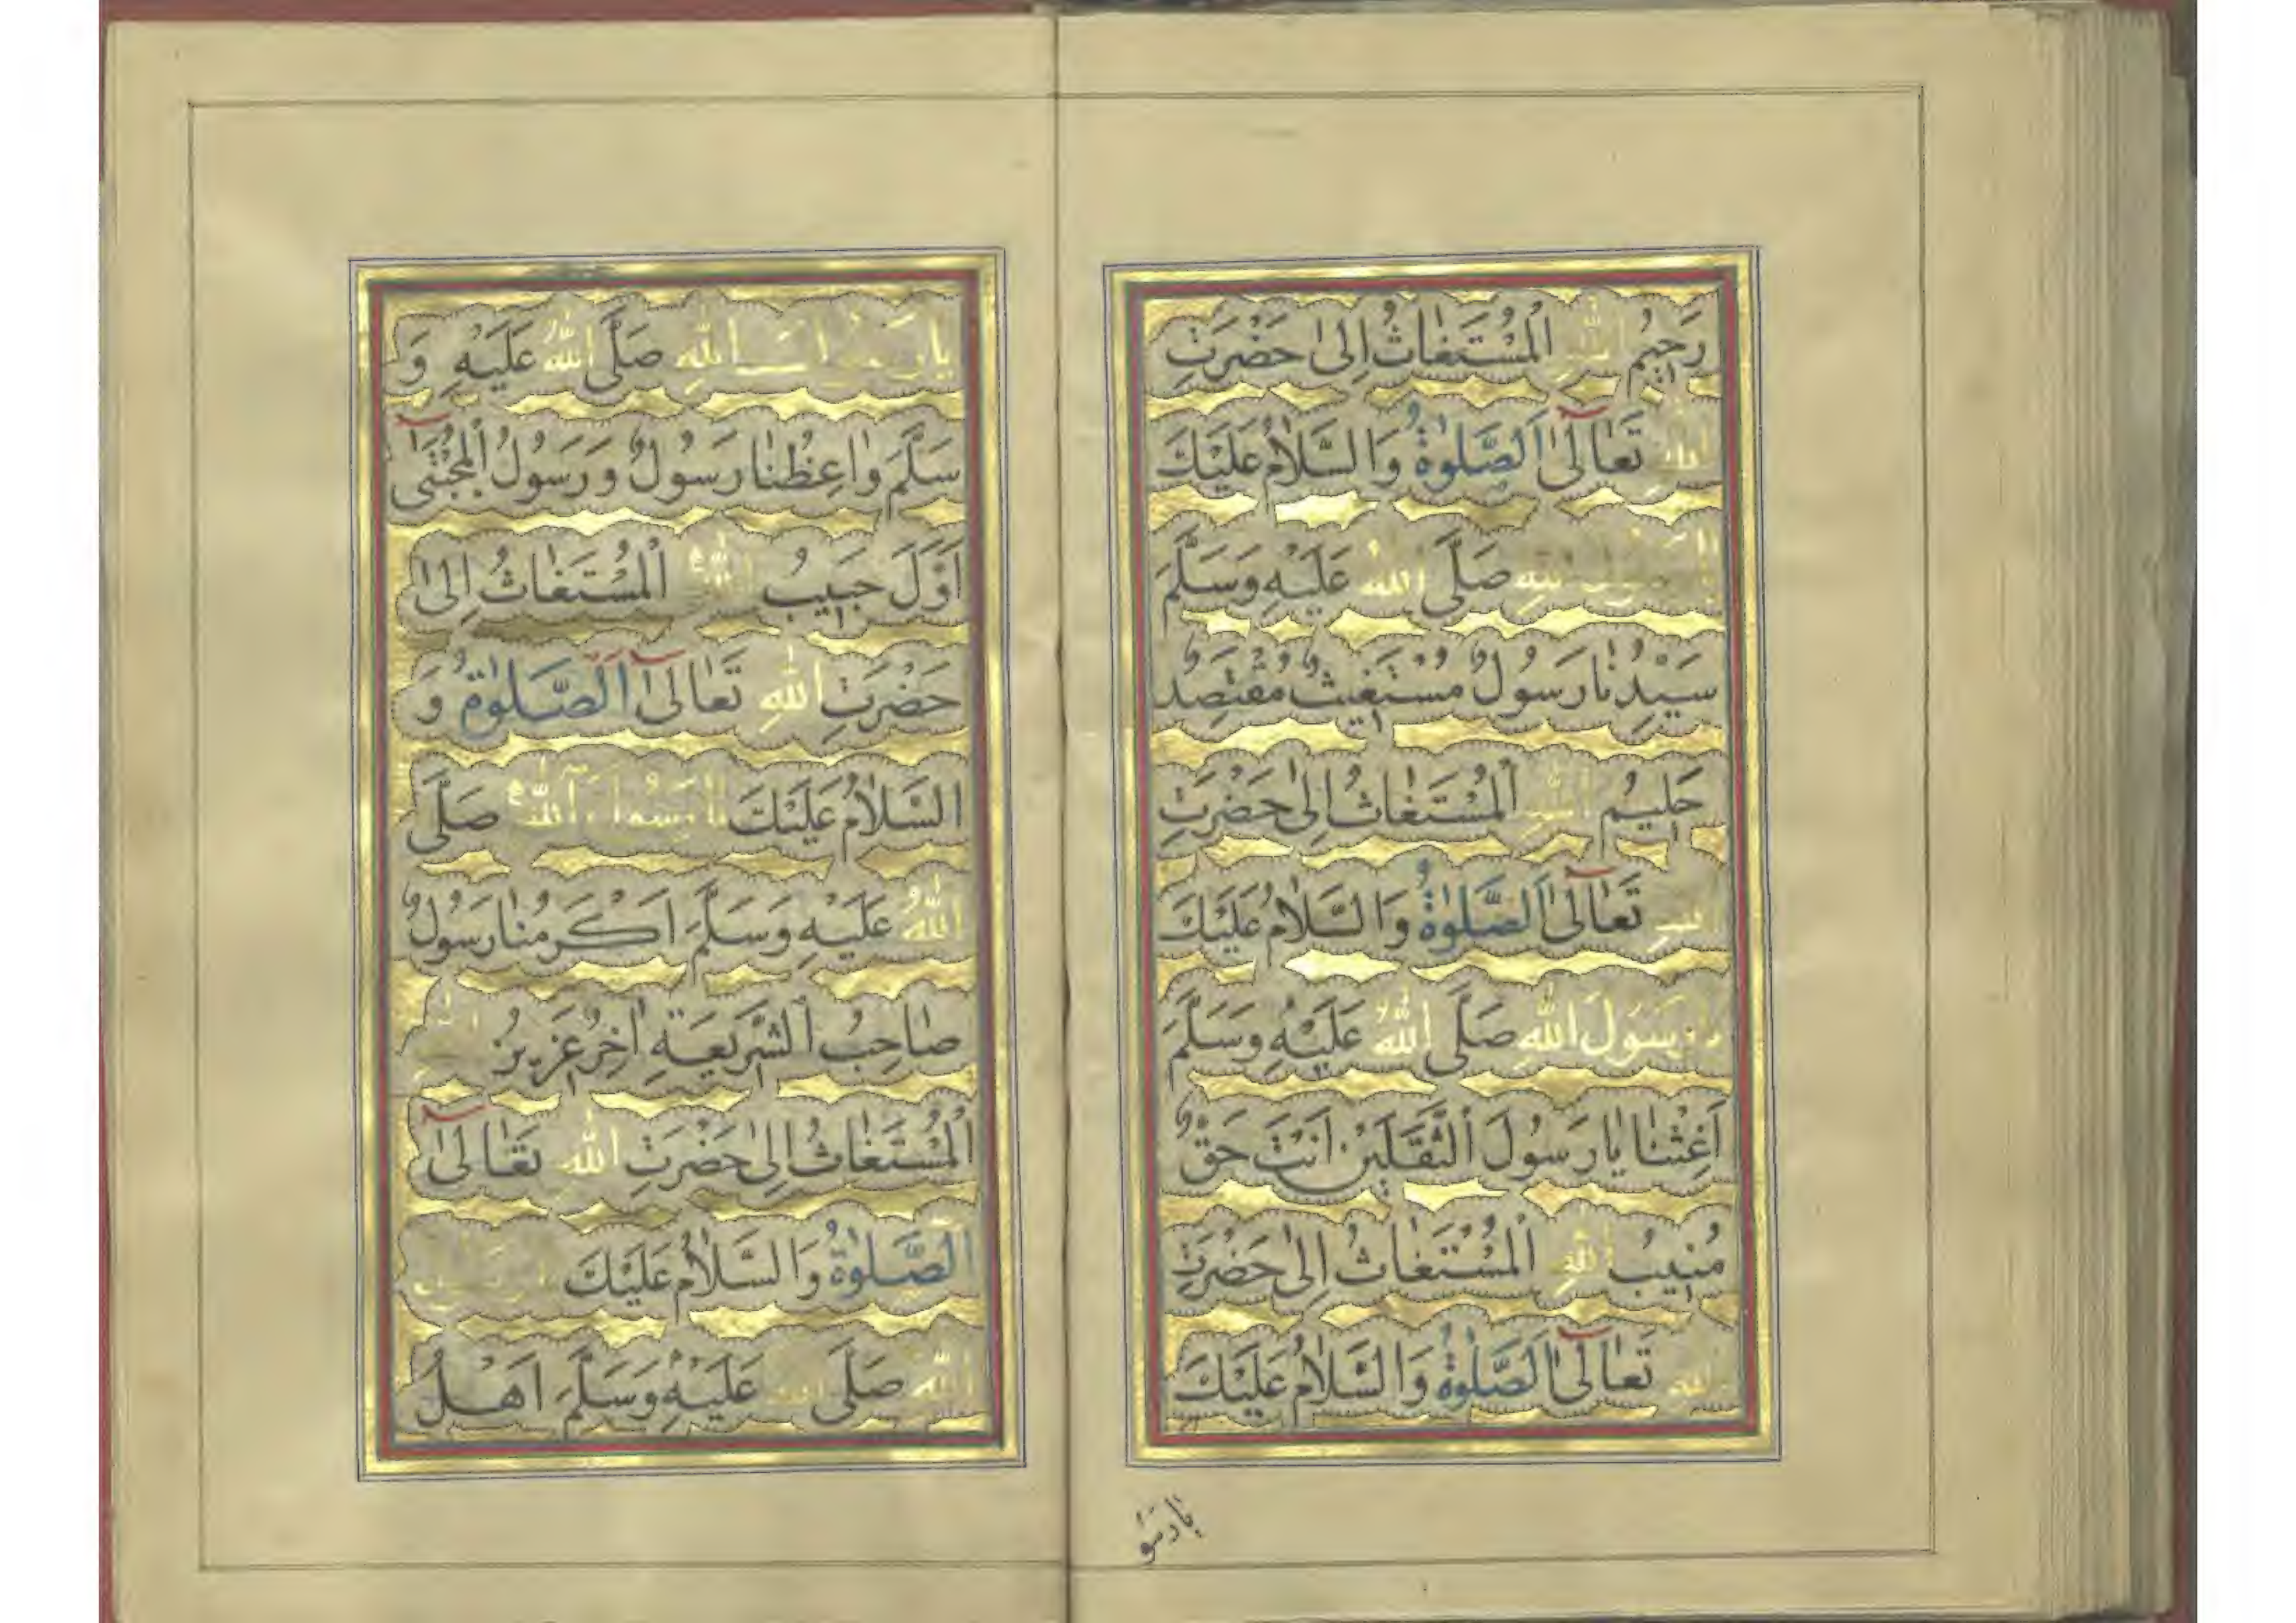 رَحِيمُ اللهِ الْمُسْتَغَاثُ اِلىٰ حَضْرَتِ
اللهِ تَعَالىٰٓ اَلصَّلٰوةُ وَالسَّلَامُ عَلَيْكَ
يَا رَسُولَ اللهِ صَلَّى اللهُ عَلَيْهِ وَسَلَّمَ
سَيِّدُنَا رَسُولٌ مُسْتَغِيثٌ مُقْتَصِدٌ
حَلِيمُ اللهِ الْمُسْتَغَاثُ اِلىٰ حَضْرَتِ
اللهِ تَعَالىٰٓ اَلصَّلٰوةُ وَالسَّلَامُ عَلَيْكَ
يَا رَسُولَ اللهِ صَلَّى اللهُ عَلَيْهِ وَسَلَّمَ
اَغِثْنَا يَا رَسُولَ الثَّقَلَيْنِ اَنْتَ حَقٌّ
مُنِيبُ اللهِ الْمُسْتَغَاثُ اِلىٰ حَضْرَتِ
اللهِ تَعَالىٰٓ اَلصَّلٰوةُ وَالسَّلَامُ عَلَيْكَ
يَا رَسُو
يَا رَسُولَ اللهِ صَلَّى اللهُ عَلَيْهِ وَ
سَلَّمَ وَاعِظُنَا رَسُولٌ وَرَسُولُ الْمُجْتَبٰىٓ
اَوَّلَ حَبِيبُ اللهِ الْمُسْتَغَاثُ اِلىٰ
حَضْرَتِ اللهِ تَعَالىٰٓ اَلصَّلٰوةُ وَ
السَّلَامُ عَلَيْكَ يَا رَسُولَ اللهِ صَلَّى
اللهُ عَلَيْهِ وَسَلَّمَ اَكْرَمُنَا رَسُولٌ
صَاحِبُ الشَّرِيعَةِ اٰخِرُ عَزِيزُ اللهِ
الْمُسْتَغَاثُ اِلىٰ حَضْرَتِ اللهِ تَعَالىٰٓ
اَلصَّلٰوةُ وَالسَّلَامُ عَلَيْكَ يَا رَسُولَ
اللهِ صَلَّى اللهُ عَلَيْهِ وَسَلَّمَ اَهْلُ